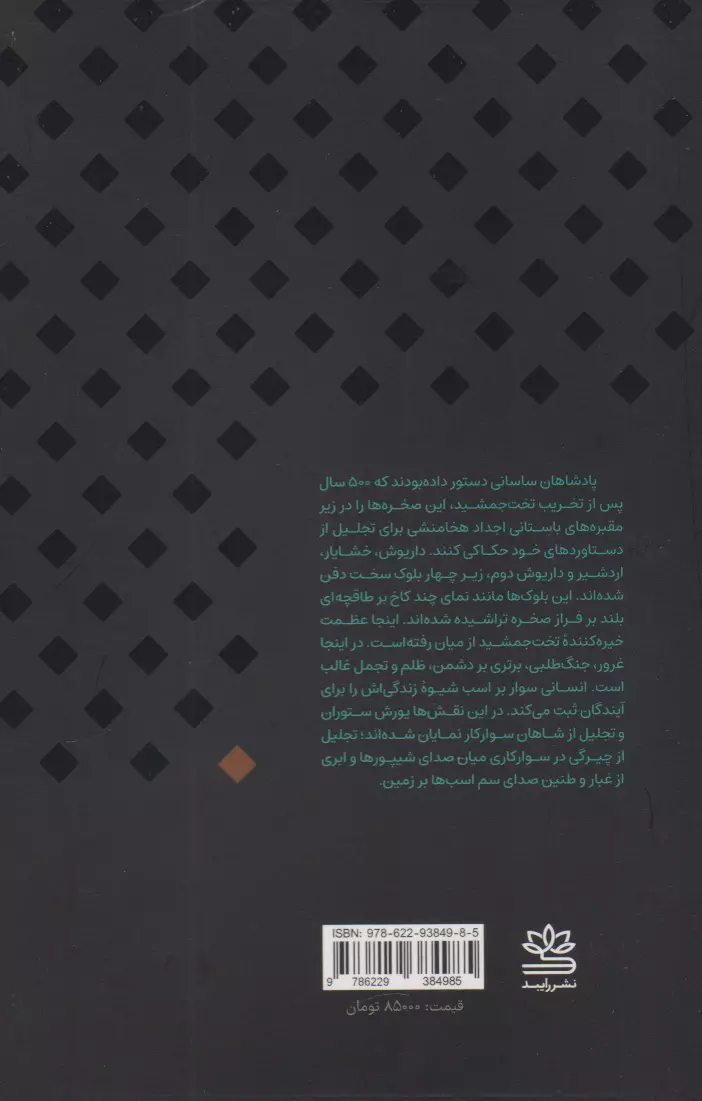 پادشاهان ساسانی دستور داده‌بودند که ۵۰۰ سال
پس از تخریب تخت‌جمشید، این صخره‌ها را در زیر
مقبره‌های باستانی اجداد هخامنشی برای تجلیل از
دستاوردهای خود حکاکی کنند. داریوش، خشایار،
اردشیر و داریوش دوم، زیر چهار بلوک سخت دفن
شده‌اند. این بلوک‌ها مانند نمای چند کاخ بر طاقچه‌ای
بلند بر فراز صخره تراشیده شده‌اند. اینجا عظمت
خیره‌کنندهٔ تخت‌جمشید از میان رفته‌است. در اینجا
غرور، جنگ‌طلبی، برتری بر دشمن، ظلم و تجمل غالب
است. انسانی سوار بر اسب شیوهٔ زندگی‌اش را برای
آیندگان ثبت می‌کند. در این نقش‌ها یورش ستوران
و تجلیل از شاهان سوارکار نمایان شده‌اند؛ تجلیل
از چیرگی در سوارکاری میان صدای شیپورها و ابری
از غبار و طنین صدای سم اسب‌ها بر زمین.
ISBN: 978-622-93849-8-5
9 786229 384985
نشر رایبد
قیمت: ۸۵۰۰۰ تومان